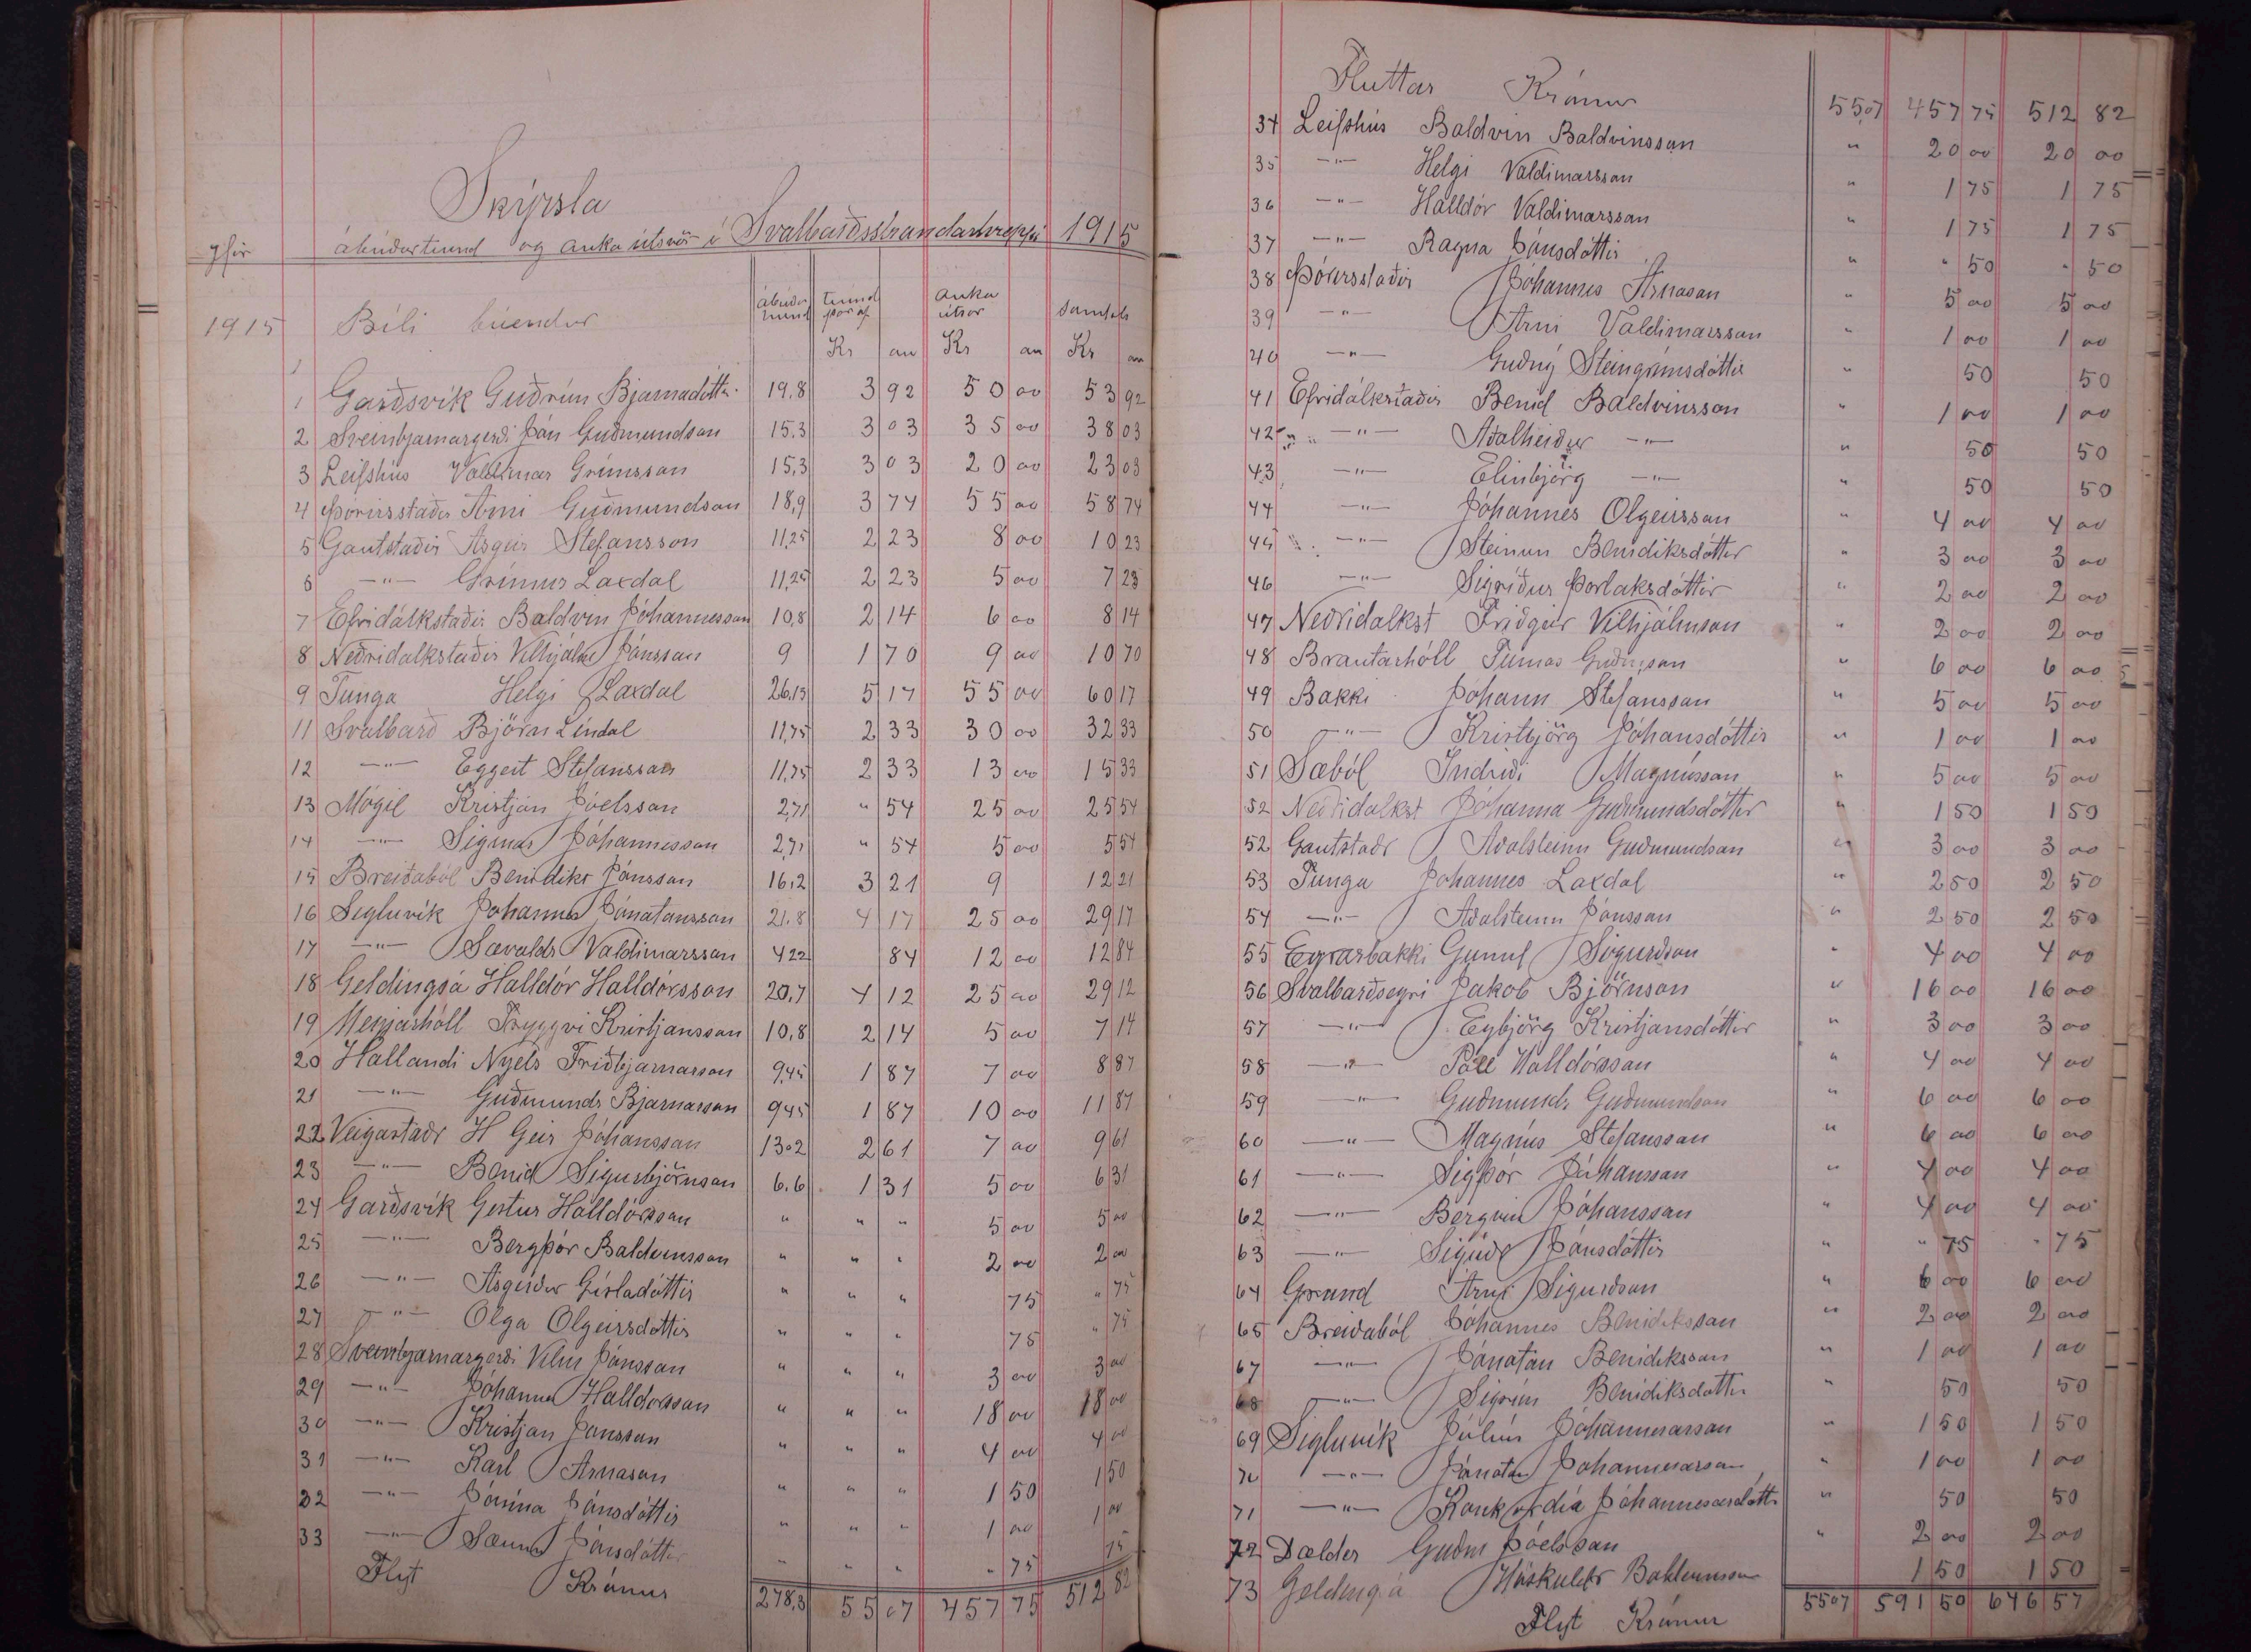 Skýrsla
yfir ábúðartíund og auka útsvör í Svalbarðsstrandarhreppi 1915
1915 Býli búendur ábúðar hund tíund þar af auka útsvör samtals
Kr au Kr au Kr au
1 Garðsvík Guðrún Bjarnadóttir 19.8 3 92 50 00 53 92
2 Sveinbjarnargerði Jón Guðmundson 15.3 3 03 35 00 38 03
3 Leifshús Valdimar Grímsson 15,3 3 03 20 00 23 03
4 Þórirsstaðir Árni Guðmundson 18,9 3 74 55 00 58 74
5 Gautstaðir Ásgeir Stefansson 11,25 2 23 8 00 10 23
6 —"— Grímur Laxdal 11,25 2 23 5 00 7 23
7 Efridálkstaðir Baldvin Jóhannesson 10,8 2 14 6 00 8 14
8 Neðridalkstaðir Vilhjálmr Jónsson 9 1 70 9 00 10 70
9 Tunga Helgi Laxdal 26,15 5 17 55 00 60 17
11 Svalbarð Björn Líndal 11,75 2 33 30 00 32 33
12 —"— Eggert Stefansson 11,75 2 33 13 00 15 33
13 Mógil Kristján Jóelsson 2,71 " 54 25 00 25 54
14 —"— Sigmar Jóhannesson 2,71 " 54 5 00 5 54
15 Breiðaból Benidikt Jónsson 16,2 3 21 9 12 21
16 Sigluvík Johannes Jónatansson 21.8 4 17 25 00 29 17
17 —"— Sævaldr Valdimarsson 422 84 12 00 12 84
18 Geldingsá Halldór Halldórsson 20,7 4 12 25 00 29 12
19 Meyjarhóll Tryggvi Kristjansson 10,8 2 14 5 00 7 14
20 Hallandi Nyels Friðbjarnarson 9,45 1 87 7 00 8 87
21 —"— Guðmundr Bjarnarson 945 1 87 10 00 11 87
22 Veigastaðr H Geir Jóhansson 1302 2 61 7 00 9 61
23 —"— Benid Sigurbjörnson 6.6 1 31 5 00 6 31
24 Garðsvík Gestur Halldórsson " " " 5 00 5 00
25 —"— Bergþór Baldvinsson " " " 2 00 2 00
26 —"— Ásgerður Gísladóttir " " " 75 " 75
27 —"— Olga Olgeirsdóttir " " " 75 " 75
28 Sveinbjarnargerði Vilm Jónsson " " " 3 00 3 00
29 —"— Jóhannes Halldórsson " " " 18 00 18 00
30 —"— Kristjan Jonsson " " " 4 00 4 00
31 —"— Karl Arnason " " " 1 50 1 50
32 —"— Jónína Jónsdóttir " " " 1 00 1 00
33 —"— Sæunn Jónsdóttir " " " " 75 75
Flyt Krónur 278,3 55 07 457 75 512 82
Fluttar Krónur 55,07 457 75 512 82
34 Leifshús Baldvin Baldvinsson " 20 00 20 00
35 —"— Helgi Valdimarsson " 1 75 1 75
36 —"— Halldór Valdimarsson " 1 75 1 75
37 —"— Ragna Jónsdóttir " " 50 " 50
38 Þórirsstaðir Jóhannes Árnason " 5 00 5 00
39 —"— Árni Valdimarsson " 1 00 1 00
40 —"— Guðný Steingrímsdóttir " 50 50
41 Efridálkstaðir Benid Baldvinsson " 1 00 1 00
42 —"— Aðalheiður —"— " 50 50
43 —"— Elinbjörg —"— " 50 50
44 —"— Jóhannes Olgeirsson " 4 00 4 00
45 —"— Steinun Benidiksdóttir " 3 00 3 00
46 —"— Sigríður Þorlaksdóttir " 2 00 2 00
47 Neðridalkst Friðgeir Vilhjálmson " 2 00 2 00
48 Brautarhóll Tumas Guðmson " 6 00 6 00
49 Bakki Jóhann Stefansson " 5 00 5 00
50 —"— Kristbjörg Jóhansdóttir " 1 00 1 00
51 Sæból Indriði Magnússon " 5 00 5 00
52 Neðridalkst Jóhanna Guðmundsdóttir " 1 50 1 50
52 Gautstaðr Aðalsteinn Guðmundson " 3 00 3 00
53 Tunga Johannes Laxdal " 2 50 2 50
54 —"— Aðalsteinn Jónsson " 2 50 2 50
55 Eyrarbakki Gunnl Sigurðson " 4 00 4 00
56 Svalbarðseyri Jakob Björnson " 16 00 16 00
57 —"— Eybjörg Kristjansdóttir " 3 00 3 00
58 —"— Páll Halldórsson " 4 00 4 00
59 —"— Guðmundr Guðmundson " 6 00 6 00
60 —"— Magnús Stefansson " 6 00 6 00
61 —"— Sigþór Jóhansson " 4 00 4 00
62 —"— Bergvin Jóhansson " 4 00 4 00
63 —"— Sigríðr Jónsdóttir " " 75 " 75
64 Grund Árni Sigurðson " 6 00 6 00
65 Breiðaból Jóhannes Benidiksson " 2 00 2 00
67 —"— Jónatan Benidiksson " 1 00 1 00
68 —"— Sigrún Benidiksdottir " 50 50
69 Sigluvík Júlíus Jóhannesarson " 1 50 1 50
70 —"— Jónatan Johannesarson " 1 00 1 00
71 —"— Konkordía Jóhannesardottr " 50 50
72 Dældir Guðm Jóelsson " 2 00 2 00
73 Geldingsá Höskuldr Baldvinsson 1 50 1 50
Flyt Krónur 5507 591 50 646 57